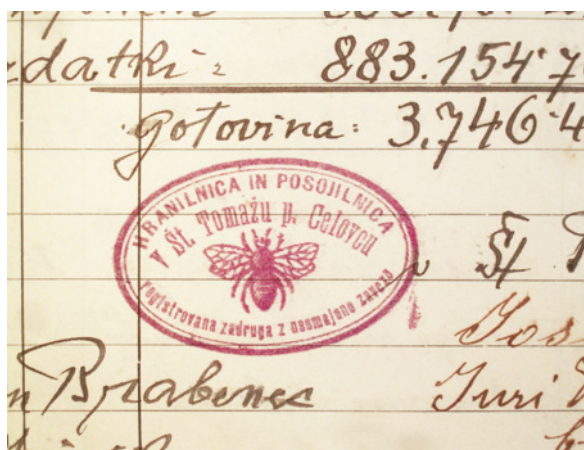 datki: 883.154 7
gotovina: 3.746 4
HRANILNICA IN POSOJILNICA
v Št. Tomažu p. Celovcu
registrovana zadruga z neomejeno zavezo
v Št
Jos
n Brabenec Juri